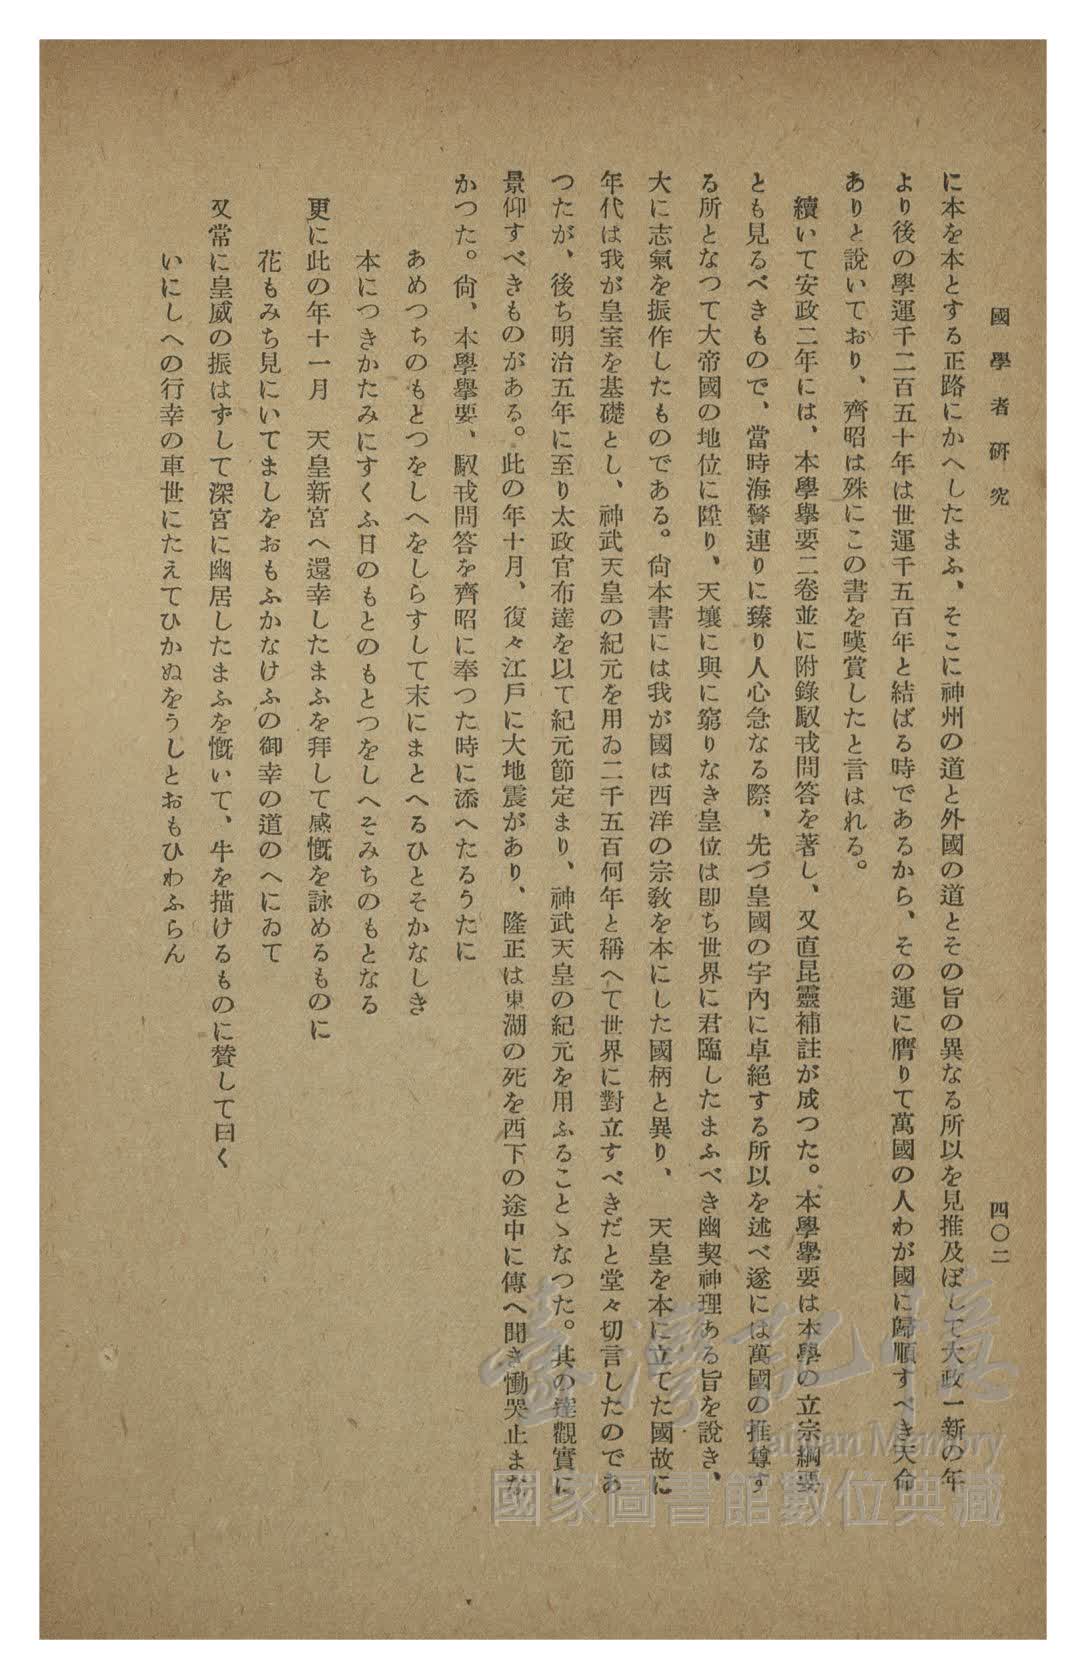 國學者研究
四〇二
に本を本とする正路にかへしたまふ、そこに神州の道と外國の道とその旨の異なる所以を見推及ぼして大政一新の年
より後の學運千二百五十年は世運千五百年と結ばる時であるから、その運に膺りて萬國の人わが國に歸順すべき天命
ありと說いており、齊昭は殊にこの書を嘆賞したと言はれる。
續いて安政二年には、本學擧要二卷並に附錄馭戎問答を著し、又直昆靈補註が成つた。本學擧要は本學の立宗綱要
とも見るべきもので、當時海警連りに臻り人心急なる際、先づ皇國の宇內に卓絕する所以を述べ遂には萬國の推尊す
る所となつて大帝國の地位に陞り、天壤に與に窮りなき皇位は卽ち世界に君臨したまふべき幽契神理ある旨を說き、
大に志氣を振作したものである。尙本書には我が國は西洋の宗教を本にした國柄と異り、　天皇を本に立てた國故に
年代は我が皇室を基礎とし、神武天皇の紀元を用ゐ二千五百何年と稱へて世界に對立すべきだと堂々切言したのであ
つたが、後ち明治五年に至り太政官布達を以て紀元節定まり、神武天皇の紀元を用ふることゝなつた。其の達觀實に
景仰すべきものがある。此の年十月、復々江戶に大地震があり、隆正は東湖の死を西下の途中に傳へ聞き慟哭止まな
かつた。尙、本學擧要、馭戎問答を齊昭に奉つた時に添へたるうたに
あめつちのもとつをしへをしらすして末にまとへるひとそかなしき
本につきかたみにすくふ日のもとのもとつをしへそみちのもとなる
更に此の年十一月　天皇新宮へ還幸したまふを拜して感慨を詠めるものに
花もみち見にいてましをおもふかなけふの御幸の道のへにゐて
又常に皇威の振はずして深宮に幽居したまふを慨いて、牛を描けるものに贊して曰く
いにしへの行幸の車世にたえてひかぬをうしとおもひわふらん
臺灣記憶
Taiwan Memory
國家圖書館數位典藏